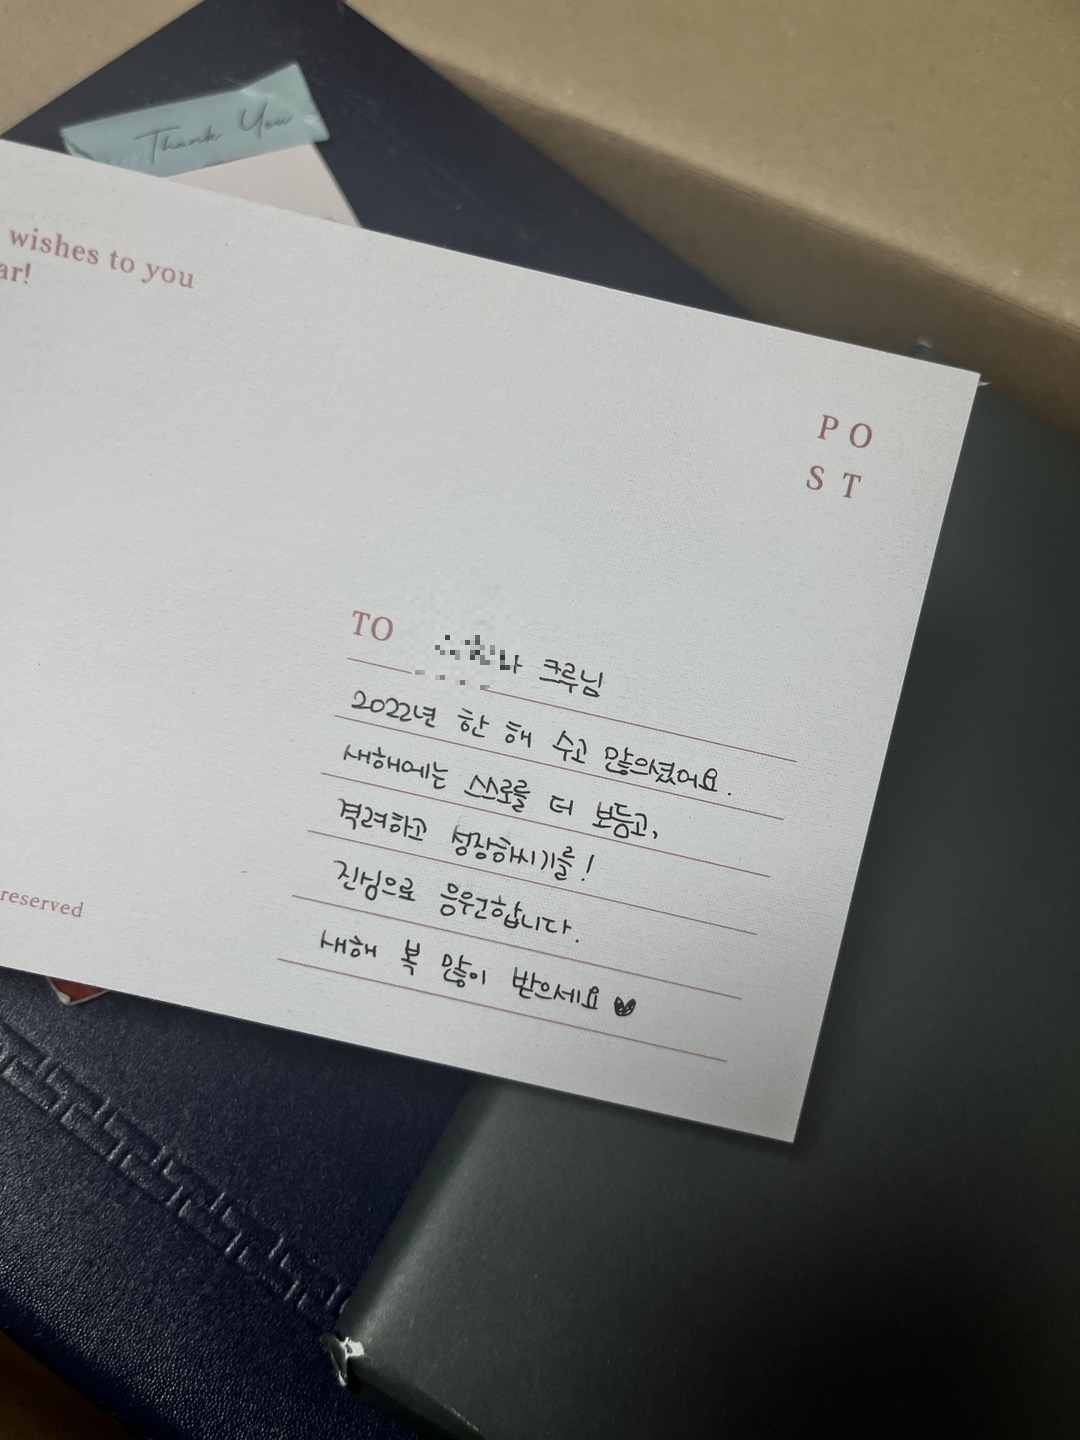 Thank You
wishes to you
ar!
P O
S T
TO 크루님
2022년 한 해 수고 많으셨어요.
새해에는 스스로를 더 보듬고,
격려하고 성장하시기를!
진심으로 응원합니다.
새해 복 많이 받으세요 ♥
reserved